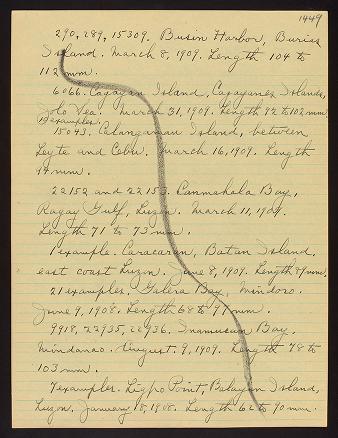 1449
290, 289, 15309. Busin Harbor, Burias
Island. March 8, 1909. Length 104 to
112 mm.
6066. Cagayan Island, Cagayanes Islands,
Jolo Sea. March 31, 1909. Length 92 to 102 mm.
19 examples.
15043. Calangaman Island, between
Leyte and Cebu. March 16, 1909. Length
mm.
22152 and 22153. Canmahala Bay,
Ragay Gulf, Luzon. March 11, 1909.
Length 71 to 73 mm.
1 example. Caracaran, Batan Island,
east coast Luzon. June 8, 1909. Length 89 mm.
21 examples. Galera Bay, Mindoro.
June 9, 1908. Length 68 to 97 mm.
9918, 22935, 22936. Inamusuan Bay,
Mindanao. August 9, 1909. Length 78 to
103 mm.
7 examples. Ligpo Point, Balayan Island,
Luzon. January 18, 1908. Length 62 to 90 mm.